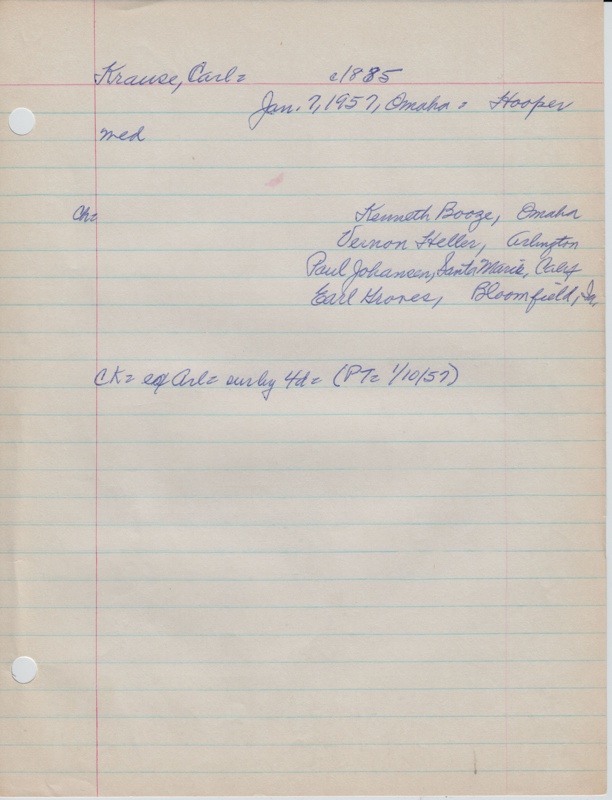 Krause, Carl= c1885
Jan. 7, 1957, Omaha = Hooper
med
Ch= Kenneth Booze, Omaha
Vernon Heller, Arlington
Paul Johansen, Santa Maria, Calif
Earl Groves, Bloomfield, Ia,
CK= Arl= surby 4d= (PT= 1/10/57)